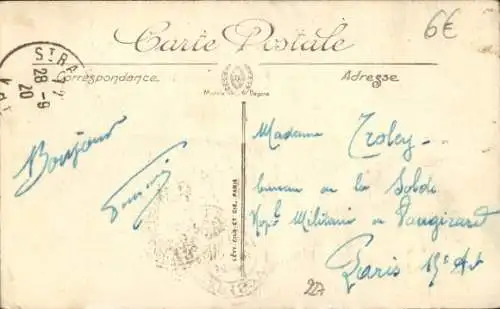 6€
Carte Postale
Correspondance
Adresse
STRA
28-9
20
Bonjour
Madame Troley
bureau de la Solde
Hopl Militaire de Vaugirard
Paris 15e Art
LÉVY FILS ET CIE, PARIS
227